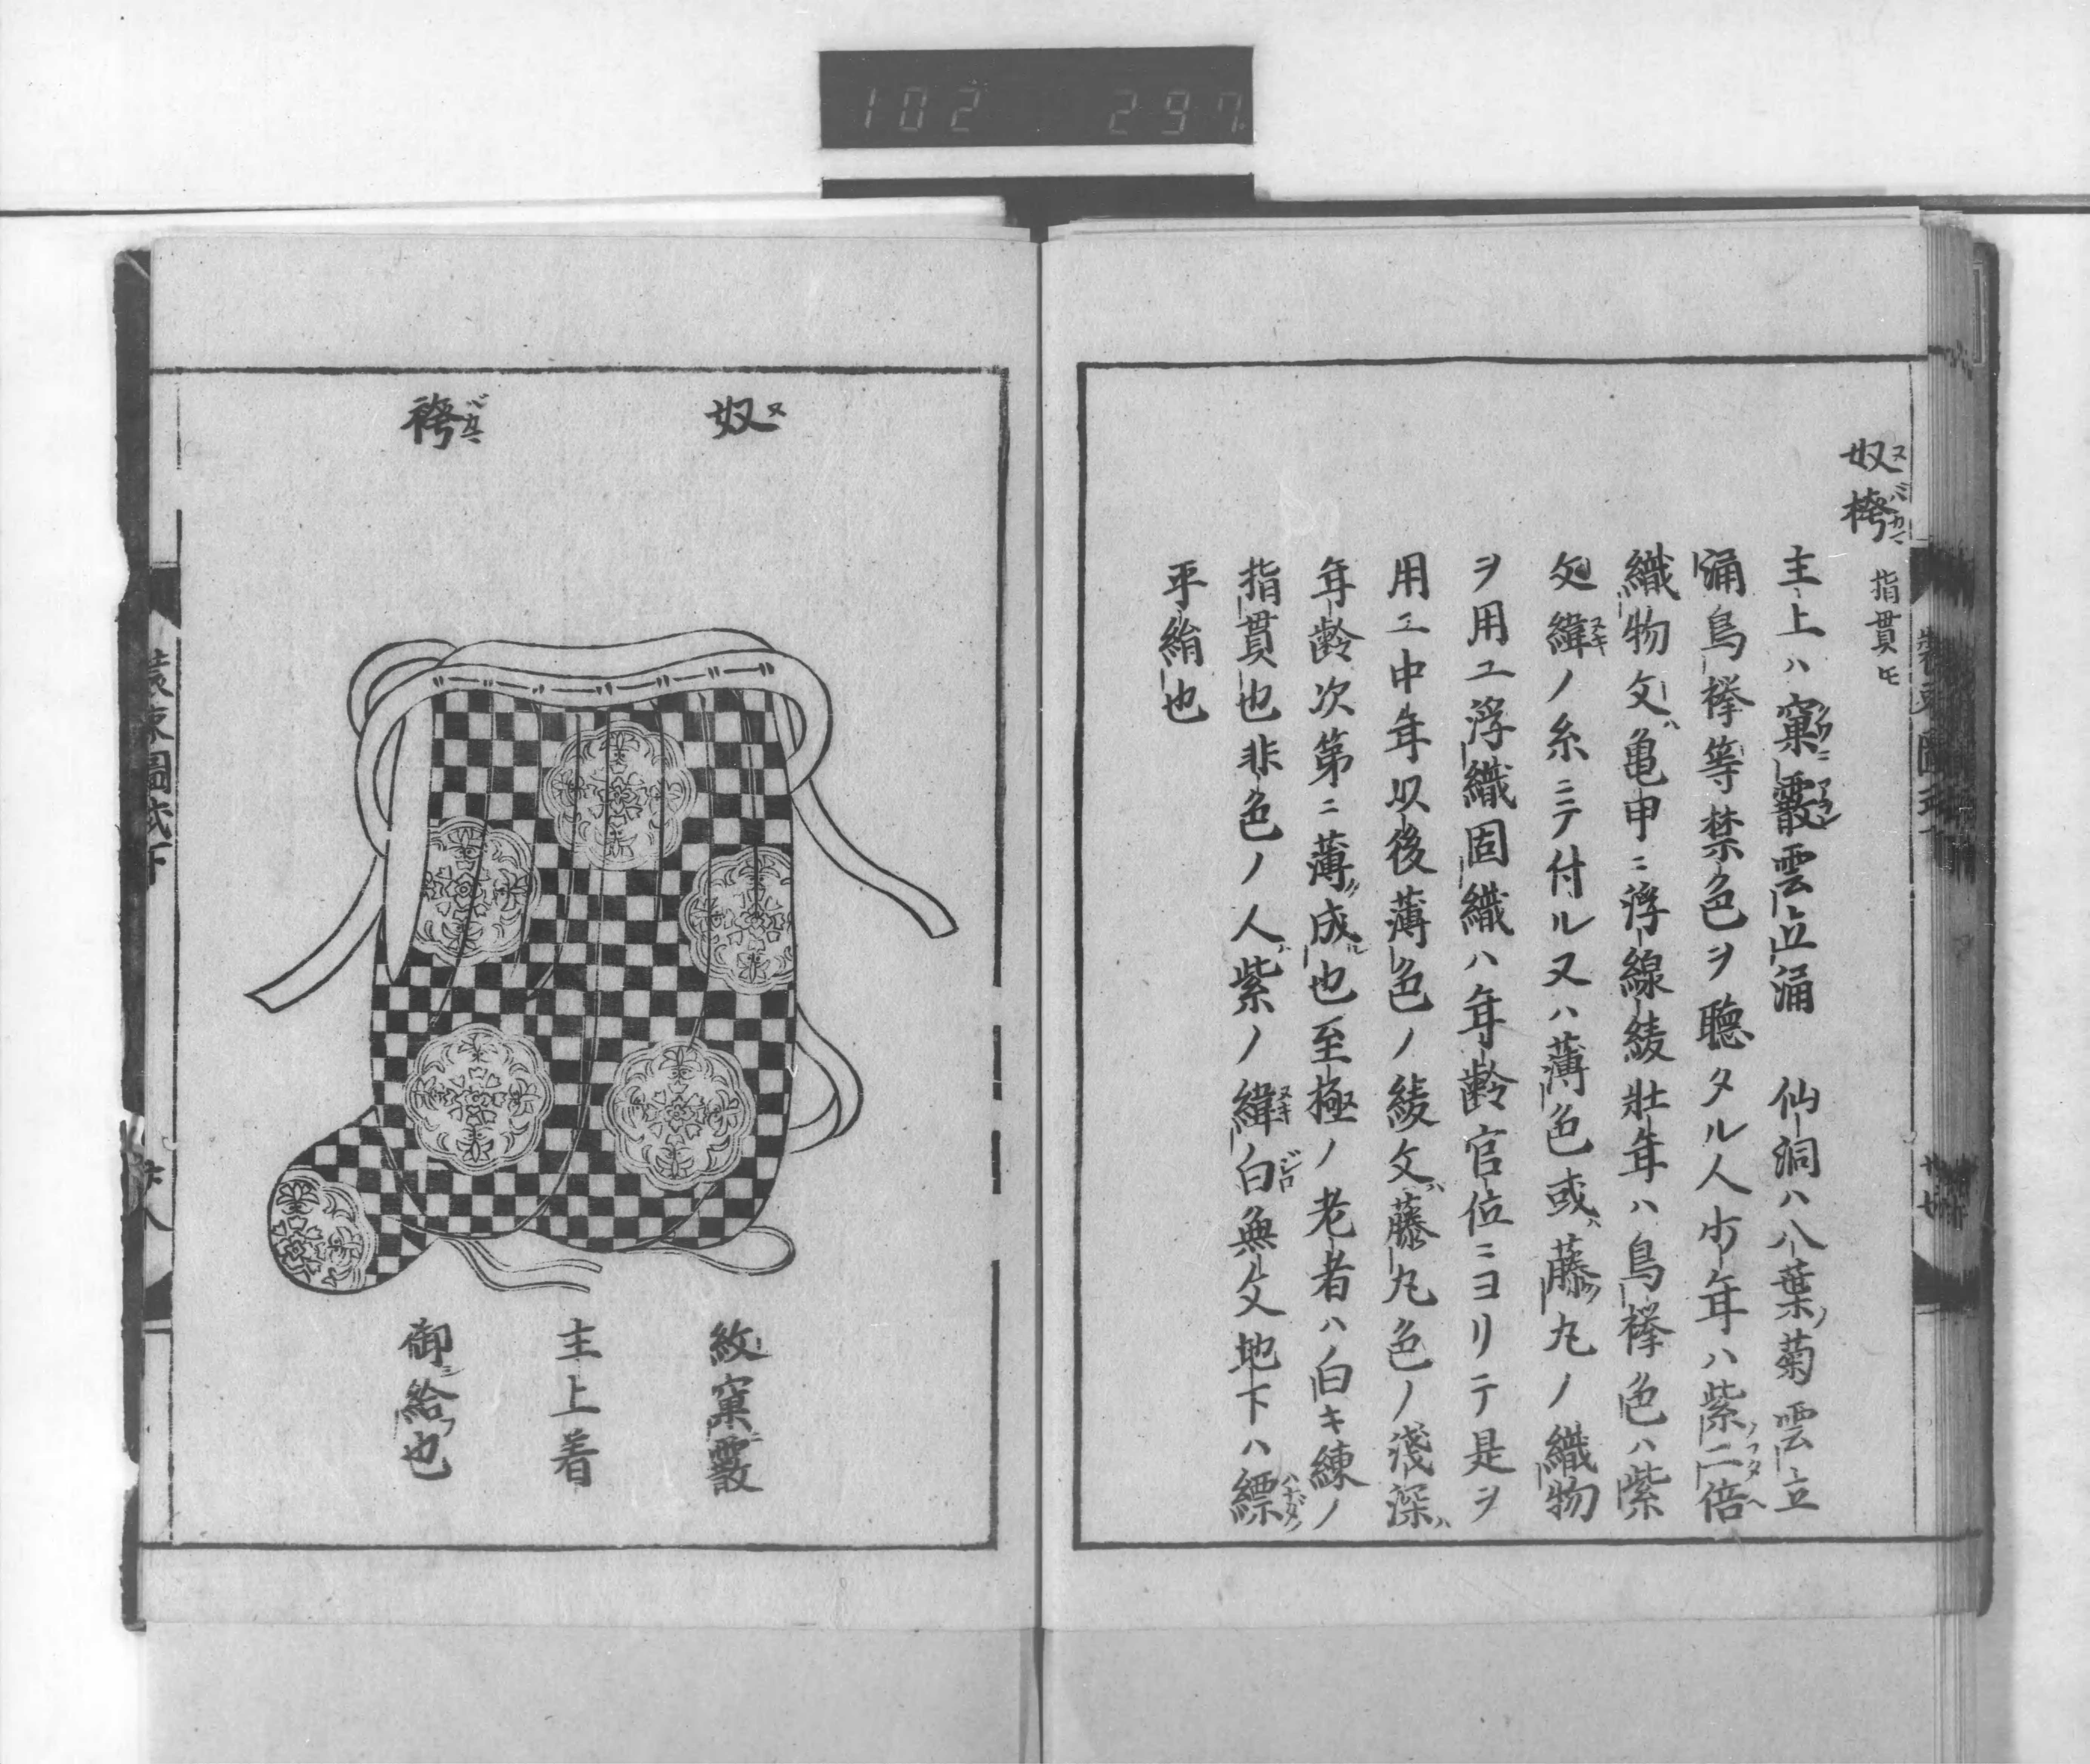 奴袴 指貫トモ
主上ハ窠ニ霰雲立涌 仙洞ハ八葉ノ菊雲立
涌鳥襷等禁色ヲ聴タル人少年ハ紫ノ二倍
織物文ハ亀甲ニ浮線綾壮年ハ鳥襷色ハ紫
文緯ノ糸ニテ付ル又ハ薄色或ハ藤ノ丸ノ織物
ヲ用ユ浮織固織ハ年齢官位ニヨリテ是ヲ
用ユ中年以後薄色ノ綾文ハ藤丸色ノ淺深ハ
年齢次第ニ薄ク成ル也至極ノ老者ハ白キ練ノ
指貫也非色ノ人ハ紫ノ緯白無文地下ハ縹ノ
平絹也
奴袴
紋窠ニ霰
主上着
御シ給フ也
裝束圖式下
102 297